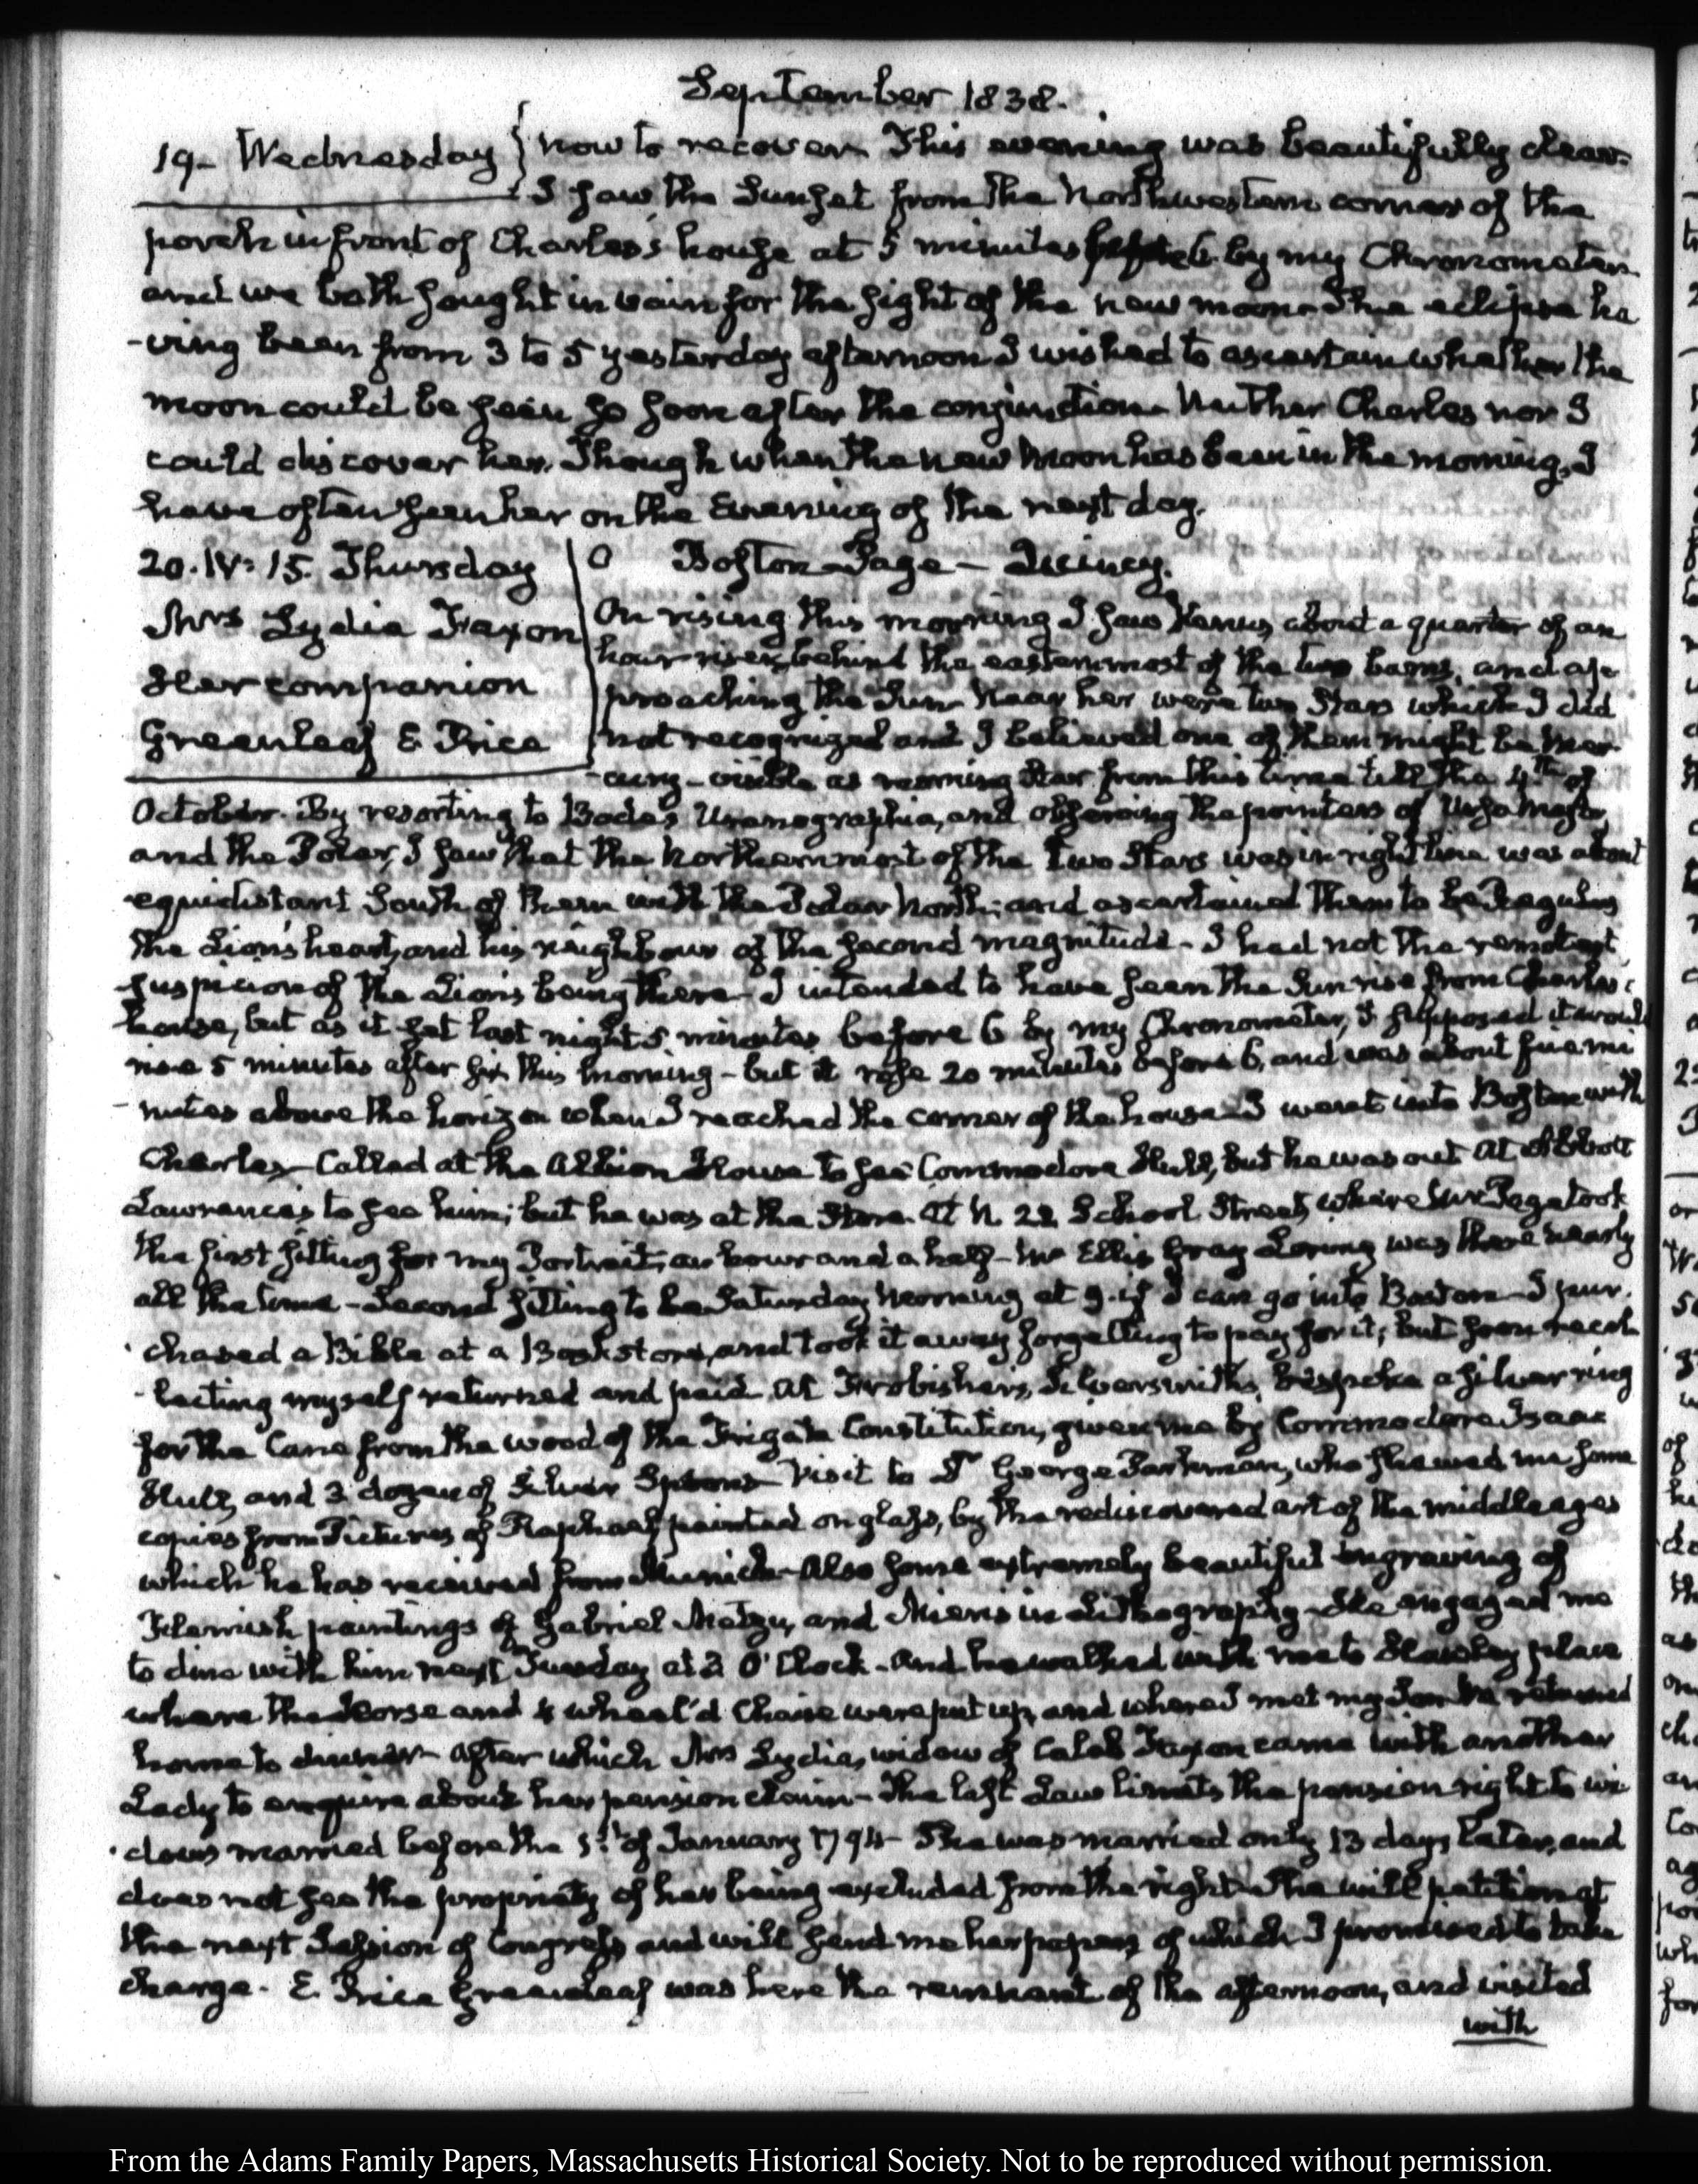 September 1838.
19- Wednesday
now to recover. This evening was beautifully clear.
I saw the Sunset from the Northwestern corner of the
porch in front of Charles's house at 5 minutes before 6 by my Chronometer
and we both sought in vain for the sight of the new moon. The eclipse ha
-ving been from 3 to 5 yesterday afternoon I wished to ascertain whether the
moon could be seen so soon after the conjunction. Neither Charles nor I
could discover her. Though when the new Moon has been in the morning, I
have often seen her on the Evening of the next day.
20. IV: 15. Thursday
Mrs Lydia Faxon
Her companion
Greenleaf E Price
Boston-Page- Quincy.
On rising this morning I saw Venus, about a quarter of an
hour risen, behind the easternmost of the two barns, and ap
proaching the Sun. Near her were two Stars which I did
not recognized and I believed one of them might be Mer-
-cury- visible as morning Star from this time till the 4th of
October. By resorting to Bode's Uranographia, and observing the pointers of Ursa Major,
and the Polar, I saw that the Northernmost of the two Stars was in right line was about
equidistant South of them with the Polar North; and ascertained them to be Regulus
the Lion's heart, and his neighbour of the second magnitude- I had not the remotest
suspicion of the Lion's being there- I intended to have seen the Sun rise from Charles's
house, but as it set last night 5 minutes before 6 by my Chronometer, I supposed it would
rise 5 minutes after six this morning- but it rose 20 minutes before 6, and was about five mi
-nutes above the horizon when I reached the corner of the house- I went into Boston with
Charles- Called at the Albion House to see Commodore Hull, but he was out. At Abbott
Lawrence's to see him; but he was at the Store. At N. 22 School Street, where Mr Page took
the first sitting for my Portrait, an hour and a half- Mr Ellis Gray Loring was there nearly
all the time- Second sitting to be Saturday Morning at 9. if I can go into Boston- I pur-
-chased a Bible at a Bookstore, and took it away forgetting to pay for it; but soon recol-
-lecting myself returned and paid. At Frobisher's, Silversmith's, bespoke a silver ring
for the Cane from the wood of the Frigate Constitution, given me by Commodore Isaac
Hull, and 2 dozen of Silver Spoons- Visit to Dr George Parkman, who shewed me some
copies from Pictures of Raphael painted on glass, by the rediscovered art of the middle ages
which he has received from Munich- Also some extremely beautiful engraving of
Flemish paintings of Gabriel Metzu, and Mieris in Lithography- He engaged me
to dine with him next Tuesday at 2 O'Clock- And he walked with me to Hawley place
where the Horse and 4 wheel'd Chaise were put up, and where I met my Son. We returned
home to dinner- After which Mrs Lydia, widow of Caleb Faxon came with another
Lady to enquire about her pension claim- The last Law limits the pension right to wi
-dows married before the 1st of January 1794- She was married only 13 days later, and
does not see the propriety of her being excluded from the right- She will petition at
the next Session of Congress and will send me her papers of which I promised to take
charge. E. Price Greenleaf was here the remnant of the afternoon, and visited
with
From the Adams Family Papers, Massachusetts Historical Society. Not to be reproduced without permission.